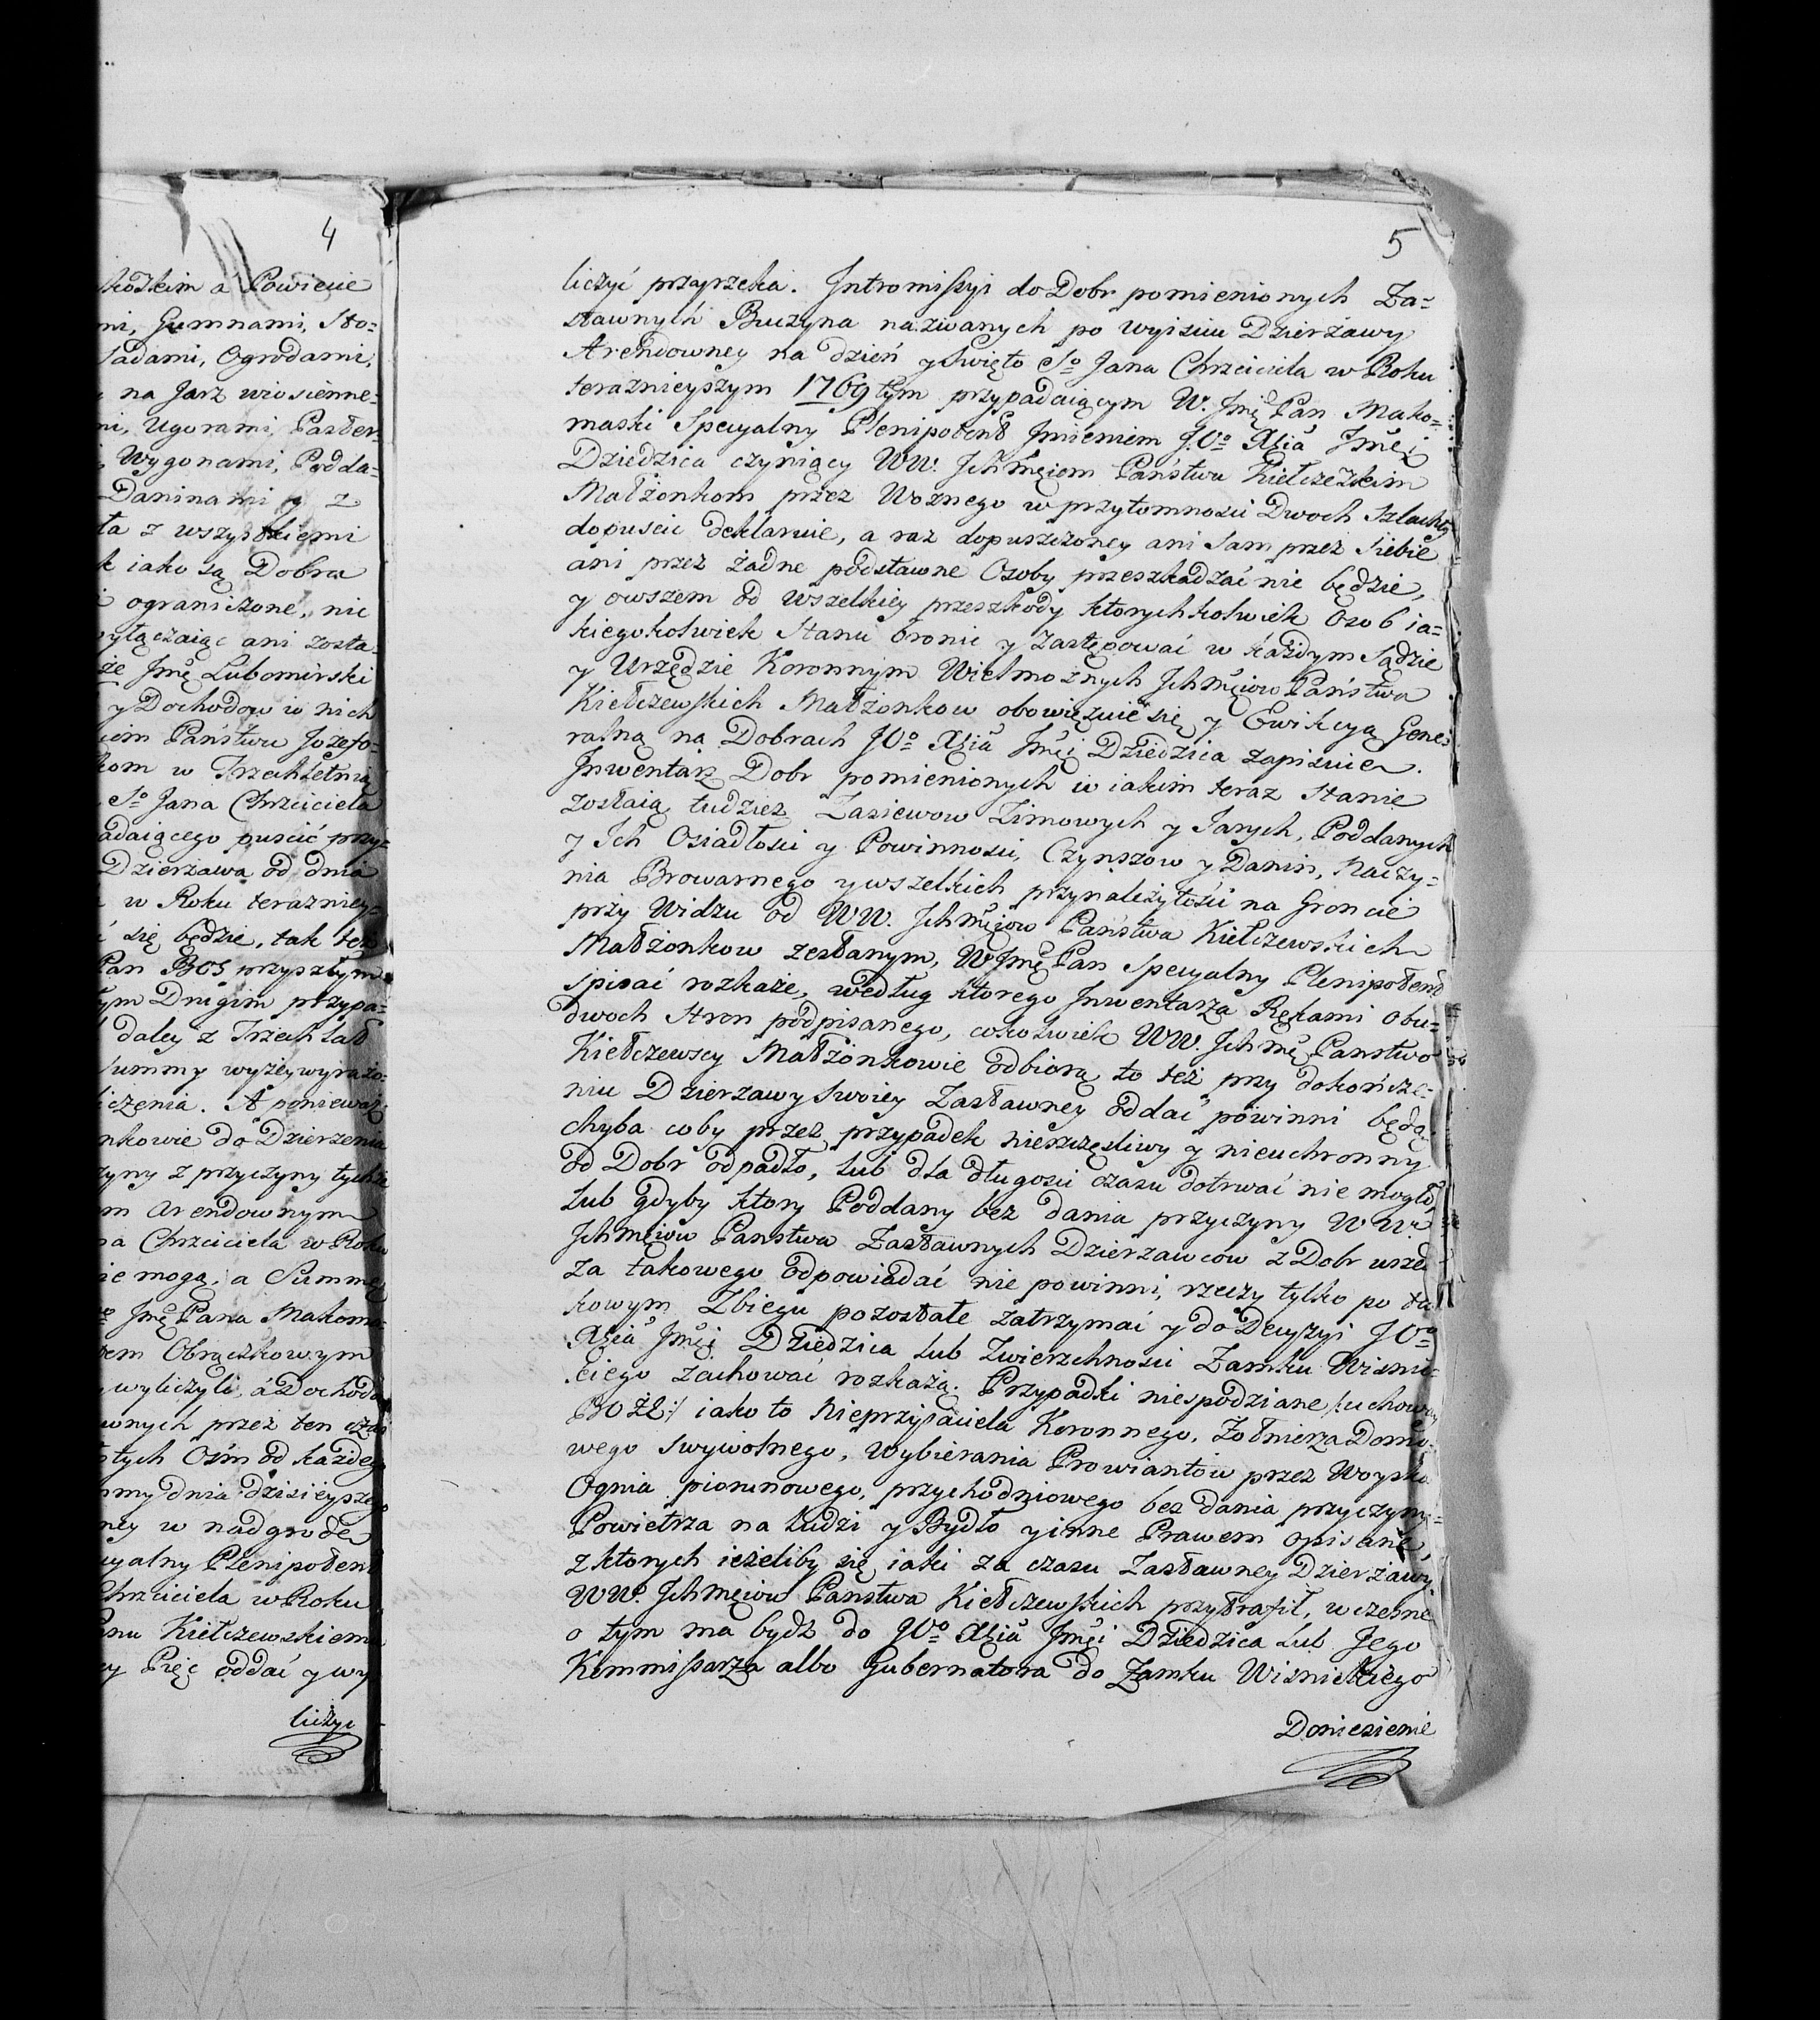 4
kozkim a Powiecie
mi, Gumnami, Sto=
Sadami, Ogrodami,
na Jarz wiosienne=
mi, Ugorami, Pastew
Wygonami, Podda=
Daninami y z
ta z wszystkiemi
k iako są Dobra
ograniczone, nic
wyłączaiąc ani zosta=
że Jmę Lubomirski
y Dochodow w nich
iom Państwu Jozefo=
kom w Trzechletnią
So Jana Chrzciciela
adaiącego puscić przy=
Dzierzawa od dnia
w Roku teraznieys=
się będzie, tak też
Pan BOG przyszłym
tym Drugim przypa=
daley z Trzech lat
Summy wyżey wyrażo=
iczenia. A ponieważ
nkowie do Dzierzenia
zyny z przyczyny tychże
m arendownym
na Chrzciciela w Roku
ie mogą, a Summę
Jmę Pana Makoma=
tem Obrączkowym
wyliczyli, á Dochodow
wnych przez ten czas
tych Osm od każdego
mmy dnia dzisieyszego
ney w nadgrodę
cyalny Plenipotent
Chrzciciela w Roku
Panu Kiełczewskiemu
cy Pięc oddać y wy
liczyc
5
liczyć przyrzeka. Intromissyi do Dobr pomienionych Za=
stawnych Buczyna nazwanych po wyisciu Dzierżawy
Arendowney na dzień y Swięto So Jana Chrzciciela w Roku
teraznieyszym 1769tym przypadaiącym W. Jmę Pan Mako=
maski Specyalny Plenipotent Imieniem JOo Xcia Jmći
Dziedzica czyniący WW. Ichmciom Państwu Kiełczewskim
Małżonkom przez Woznego w przytomnosci Dwoch Szlachty
dopuscic deklaruie, a raz dopuszczoney ani Sam przez siebie
ani przez żadne podstawne Osoby przeszkadzać nie będzie,
y owszem od wszelkiey przeszkody ktorychkolwiek Osob ia=
kiegokolwiek Stanu bronic y zastępować w każdym Sądzie
y Urzędzie Koronnym Wielmożnych Ichmciow Państwa
Kiełczewskich Małżonkow obowięzuie się y Ewikcyą Gene=
ralną na Dobrach JOo Xcia Jmći Dziedzica zapisuie.
Inwentarz Dobr pomienionych w iakim teraz Stanie
zostaią tudziez Zasiewow Zimowych y Jarych, Poddanych
y Ich Osiadłosci y Powinnosci, Czynszow y Danin, Naczy=
nia Browarnego y wszelkich przynależytości na Groncie
przy Widzu od WW. Ichmciow Państwa Kiełczewskich
Małżonkow zesłanym, WJmę Pan Specyalny Plenipotent
spisać rozkaże, według ktorego Inwentarza Rękami obu=
dwoch Stron podpisanego, cokolwiek WW. Ichmę Panstwo
Kiełczewscy Małżonkowie odbiorą to też przy dokończe=
niu Dzierzawy Swoiey Zastawney oddać powinni będą,
chyba coby przez przypadek nieszczęsliwy y nieuchronny
od Dobr odpadło, lub dla długosci czasu dotrwać nie mogło,
Lub gdyby ktory Poddany bez dania przyczyny WW.
Ichmciow Panstwa Zastawnych Dzierzawcow z Dobr uszedł
za takowego odpowiadać nie powinni, rzeczy tylko po ta=
kowym Zbiegu pozostałe zatrzymać y do Decyzyi JOo
Xcia Jmći Dziedzica lub Zwierzchnosci Zamku Wisnic=
kiego zachować rozkażą. Przypadki niespodziane /:uchoway
BOŻE:/ iako to Nieprzyiaciela Koronnego, Żołnierza Domo=
wego swywolnego, Wybierania Prowiantow przez Woysko
Ognia piorunowego, przychodniowego bez dania przyczyny=
Powietrza na ludzi y Bydło y inne Prawem opisane,
z ktorych ieżeliby się iaki za czasu Zastawney Dzierżawy
WW. Ichmciow Panstwa Kiełczewskich przytrafił, wczesne
o tym ma bydz do JOo Xcia Jmći Dziedzica lub Jego
Kommissarza albo Gubernatora do Zamku Wisnickiego
Doniesienie